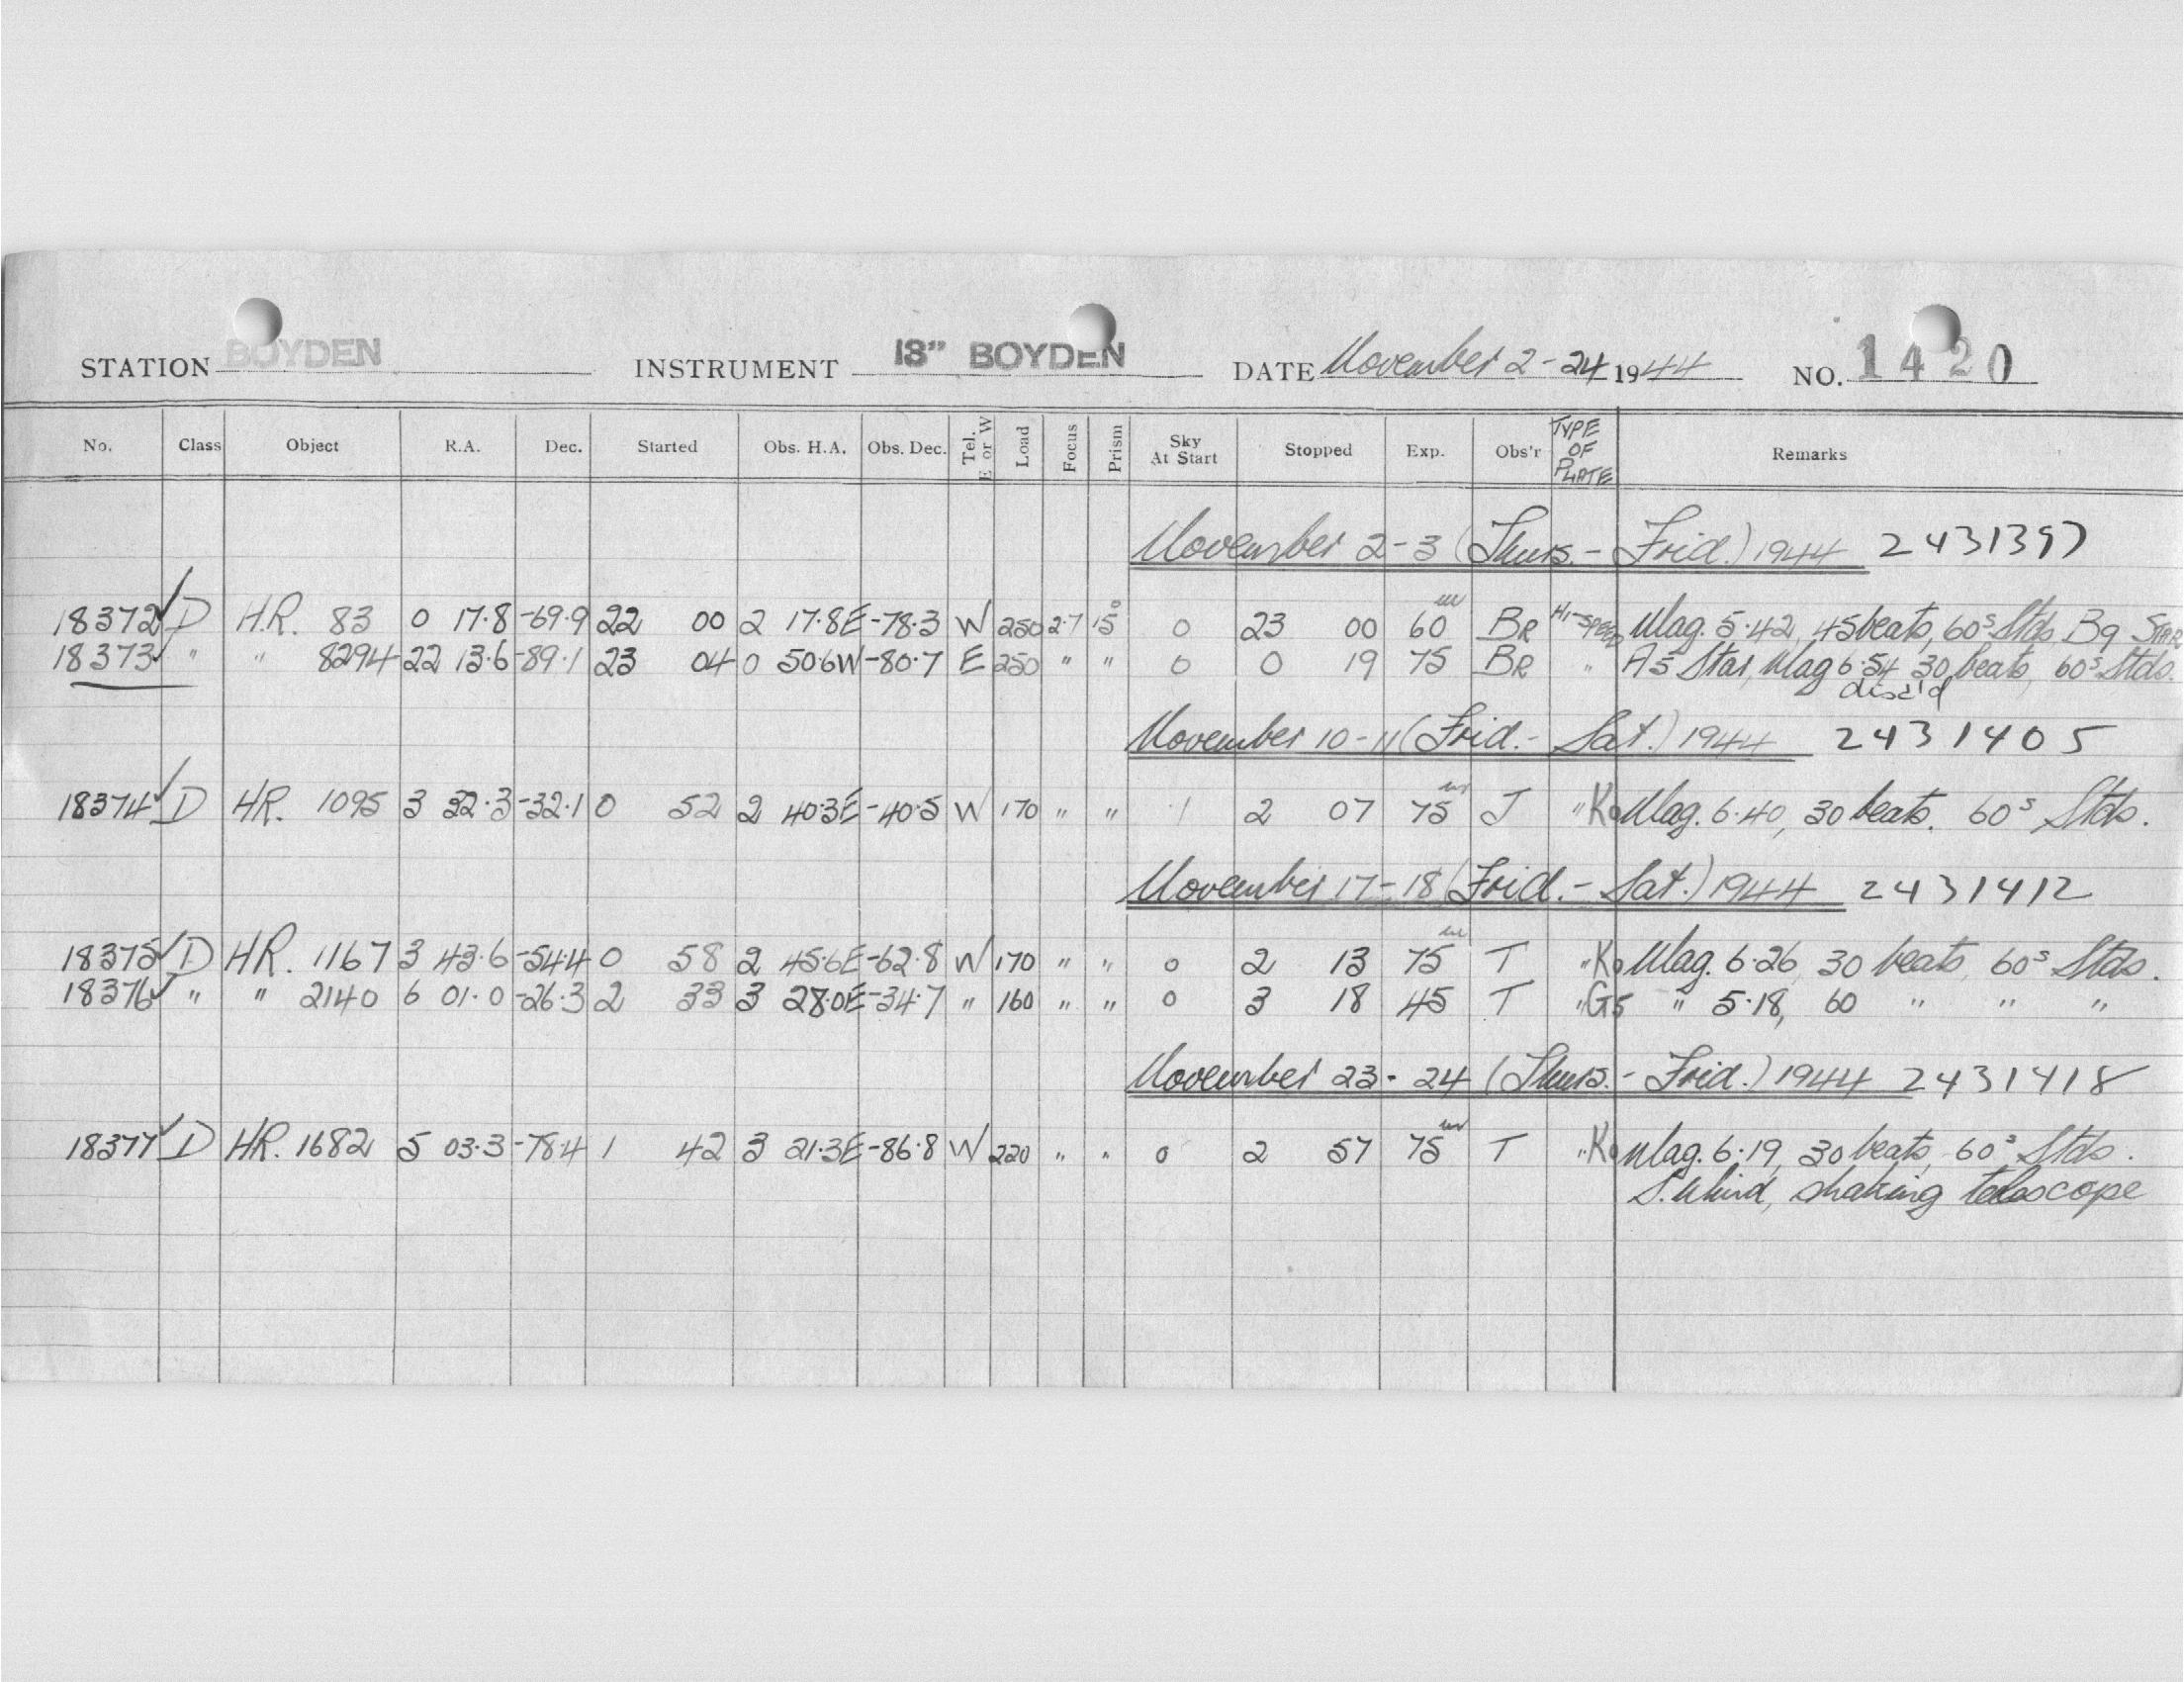 STATION BOYDEN INSTRUMENT 18" BOYDEN DATE November 2-24 1944 NO. 1420
No. Class Object R.A. Dec. Started Obs. H.A. Obs. Dec. Tel. E or W Load Focus Prism Sky At Start Stopped Exp. Obs'r TYPE OF PLATE Remarks
November 2-3 (Thurs.- Frid.) 1944 2431397
18372 D H.R. 83 0 17.8 -69.9 22 00 2 17.8E -78.3 W 250 2.7 15° 0 23 00 60m BR HI-SPEED Mag. 5.42, 45 beats, 60s Stds. B9 STAR
18373 " " 8294 22 13.6 -89.1 23 04 0 50.6W -80.7 E 250 " " 0 0 19 75 BR " A5 Star, Mag 6.54 30 beats, 60s Stds.
disc'd
November 10-11 (Frid.- Sat.) 1944 2431405
18374 D HR. 1095 3 32.3 -32.1 0 52 2 40.3E -40.5 W 170 " " 1 2 07 75m J " K0 Mag. 6.40, 30 beats. 60s Stds.
November 17-18 (Frid.- Sat.) 1944 2431412
18375 D HR. 1167 3 43.6 -54.4 0 58 2 45.6E -62.8 W 170 " " 0 2 13 75m T " K0 Mag. 6.26 30 beats 60s Stds.
18376 " " 2140 6 01.0 -26.3 2 33 3 28.0E -34.7 " 160 " " 0 3 18 45 T " G5 " 5.18, 60 " " "
November 23-24 (Thurs.- Frid.) 1944 2431418
18377 D HR. 1682 5 03.3 -78.4 1 42 3 21.3E -86.8 W 220 " " 0 2 57 75m T " K0 Mag. 6.19, 30 beats, 60s Stds.
S. Wind, shaking telescope